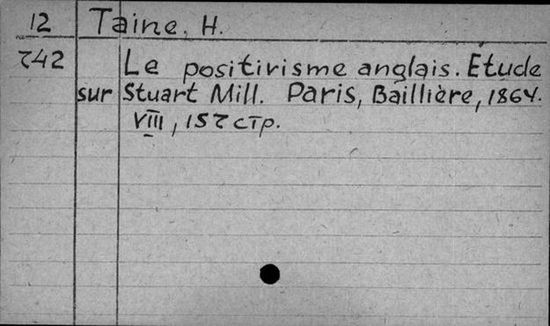 12 Taine, H.
242 Le positivisme anglais. Etude
sur Stuart Mill. Paris, Baillière, 1864.
VIII, 157 стр.